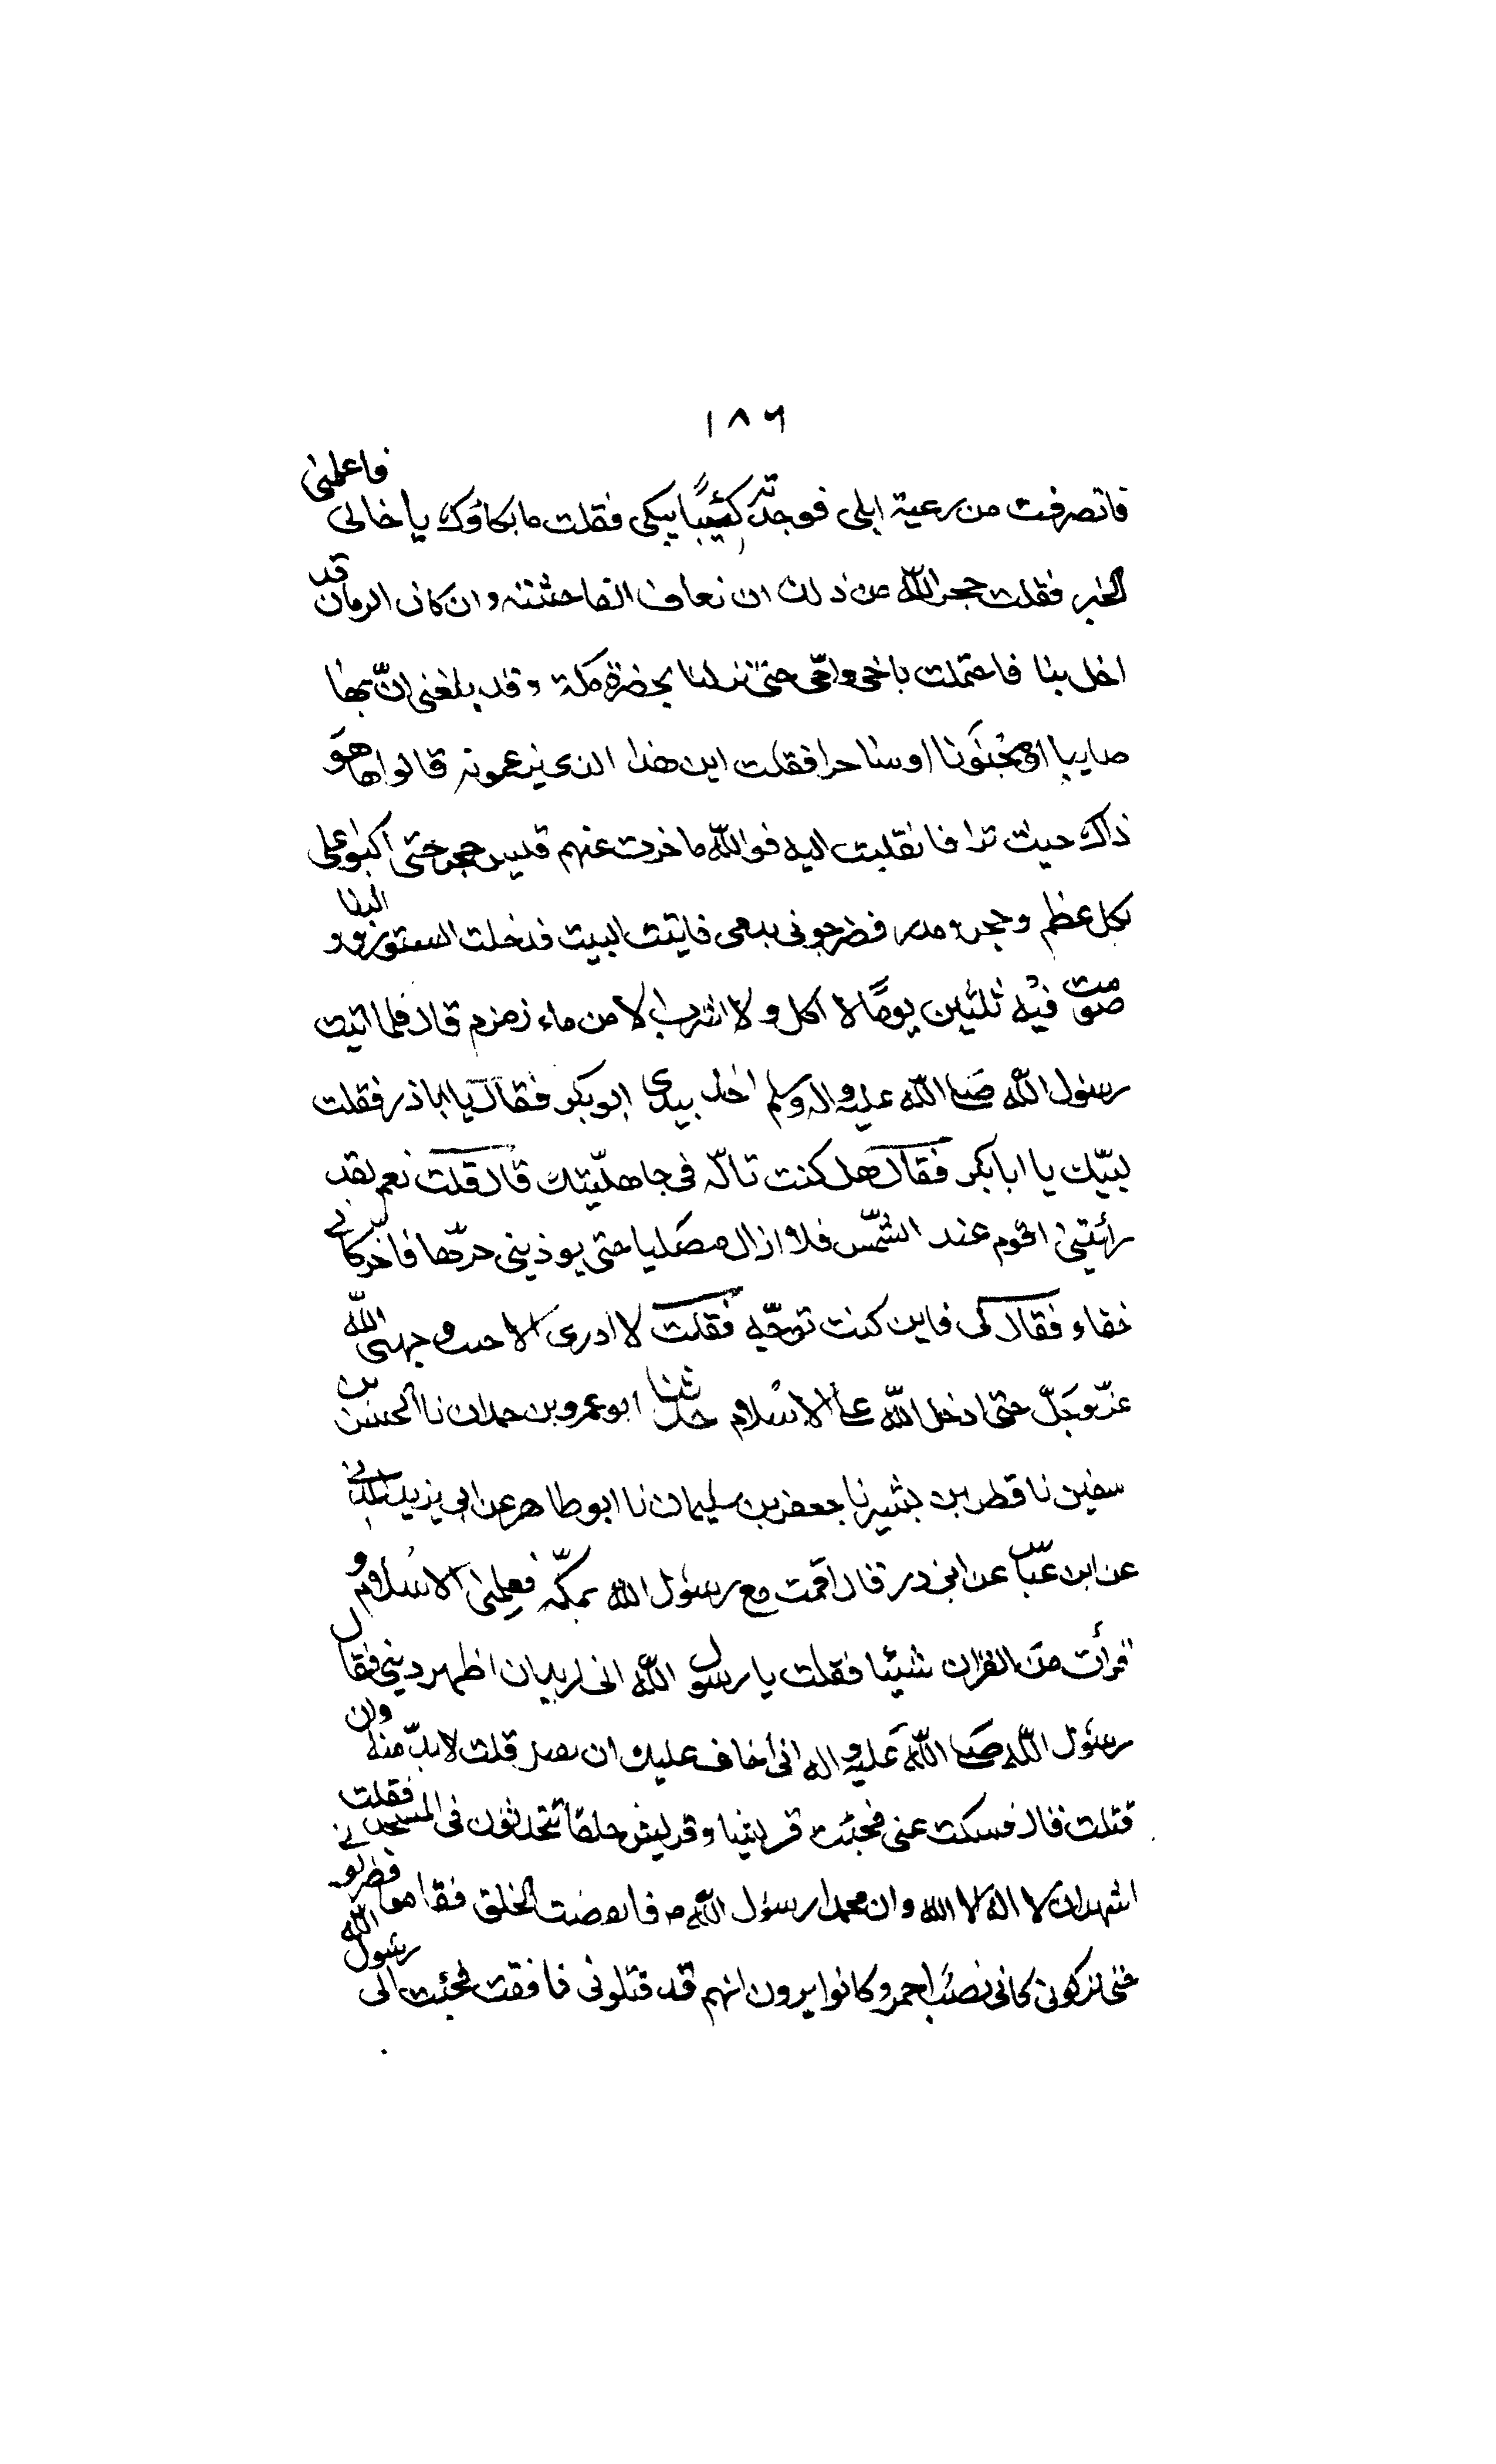 ١٨٦
فانصرفت من رعية ابلى فوجدته كئيبًا يبكى فقلت ما بكاؤك يا خالى فاعلمنى
الخبر فقلت حجر الله من ذلك ان نعاف الفاحشة وان كان الزمان قد
اخل بنا فاحتملت باخى وامّى حتى نزلنا بحضرة مكة وقد بلغنى انّ بها
صابيا او مجنونا او ساحرا فقلت اين هذا الذى تزعمونه قالوا ها هو
ذاك حيث ترا فانقلبت اليه فوالله ما خرت عنهم قيس حجر حتى اكبوا على
بكل عظم وحجر ومدر فضرجونى بدمى فاتيت البيت فدخلت الستور و البنا
وصمت فيه ثلثين يومًا لا اكل ولا اشرب الا من ماء زمزم قال فلما اتيت
رسول الله صلى الله عليه واله وسلم اخذ بيدى ابو بكر فقال يا اباذر فقلت
لبيّك يا ابا بكر فقال هل كنت تألّه فى جاهليّتك قال قلت نعم لقد
رأيتنى اقوم عند الشمس فلا ازال مصليا حتى يوذينى حرّها فاخر كانى
خفاء فقال لى فاين كنت توجّه فقلت لا ادرى الا حيث وجهنى الله
عزّ وجلّ حتى ادخل الله على الاسلام حدثنا ابو عمرو بن حمدان نا الحسن بن
سفين نا قطر بن بشير نا جعفر بن سليمان نا ابو طاهر عن ابى يزيد المدنى
عن ابن عبّاس عن ابى ذر قال اقمت مع رسول الله بمكّه فعلمنى الاسلام و
قرأت من القران شيئا فقلت يا رسول الله انى اريد ان اظهر دينى فقال
رسول الله صلى الله عليه واله انى أخاف عليك ان تقتل قلت لا بدّ منه وان
قتلت قال فسكت عنى فجئت قريشا وقريش حلقا يتحدثون فى المسجد فقلت
اشهد ان لا اله الا الله وان محمدا رسول الله فانتفضت الخلق فقاموا فضربونى
حتى تركونى كانى نصب احمر وكانوا يرون انهم قد قتلونى فافقت فجئت الى رسول الله